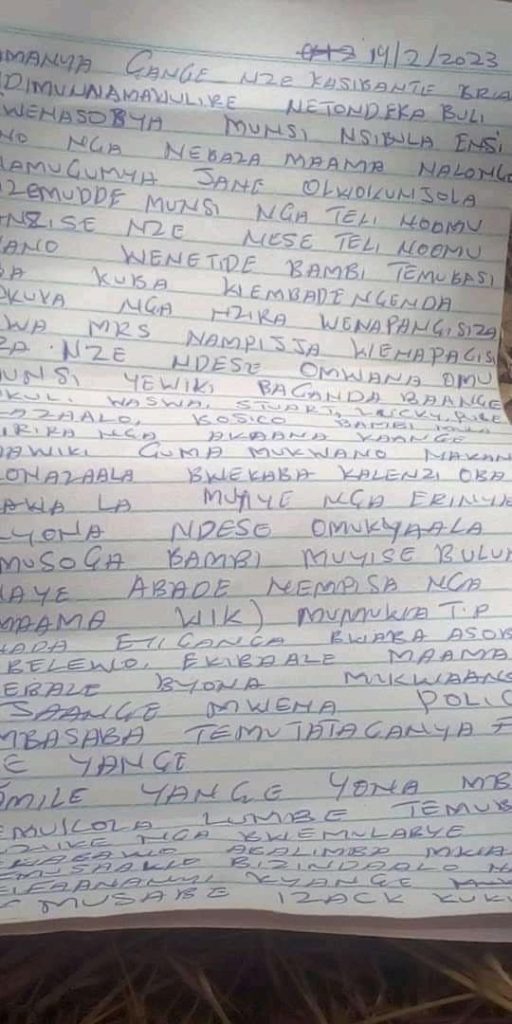 14/2/2023
MANYA GANGE NZE KASIBANTE BRIA
DIMUNNAMAWULIRE NETONDEKA BULI
WENASOBYA MUNSI NSIBULA ENSI
NO NGA NEBAZA MAAMA NALONGO
NAMUGUMYA JANE OLWOKUNJOLA
ZEMUDDE MUNSI NGA TELI NOOMU
NZISE NZE NESE TELI NOOMU
ANO WENETIDE BAMBI TEMUBASI
BA KUBA WEMBADENGENDA
OKUVA NGA NZIRA WENAPANGISIZA
WA MRS NAMPIJJA WENAPAGISI
ZA NZE NDESE OMWANA OMU
UNSI YEWIKI BAGANDA BAANGE
KUL. WASWA, STUART,
ZAALO, KOSICO BAMBI
RIRA NGA AKAANA KAANGE
AWIKI GUMA MUKWANO MAKAN
ONAZAALA BWEKABA KALENZI OBA
AWA LA MUYIYE NGA ERINYA
LYONA NDESE OMUKYAALA
MUSOGA BAMBI MUYISE BULUN
AYE ABADE NEMPISA NGA
MAAMA WIKI MUMUKWATP
ETIGANGA BWABA ASOB
BELEWO, EKIBAALE MAAMA
EBALE BYONA MUKWAANO
SAANGE MWENA POLIC
MBASABA TEMUTATAGANYA F
E YANGE
OMILE YANGE YONA MB
EMUKOLA LUMBE TEMUB
ZIIKE NGA BWEMULABYE
AKALIMBA
BIZINDAALO
KYANGE
MUSABE IZACK KUK